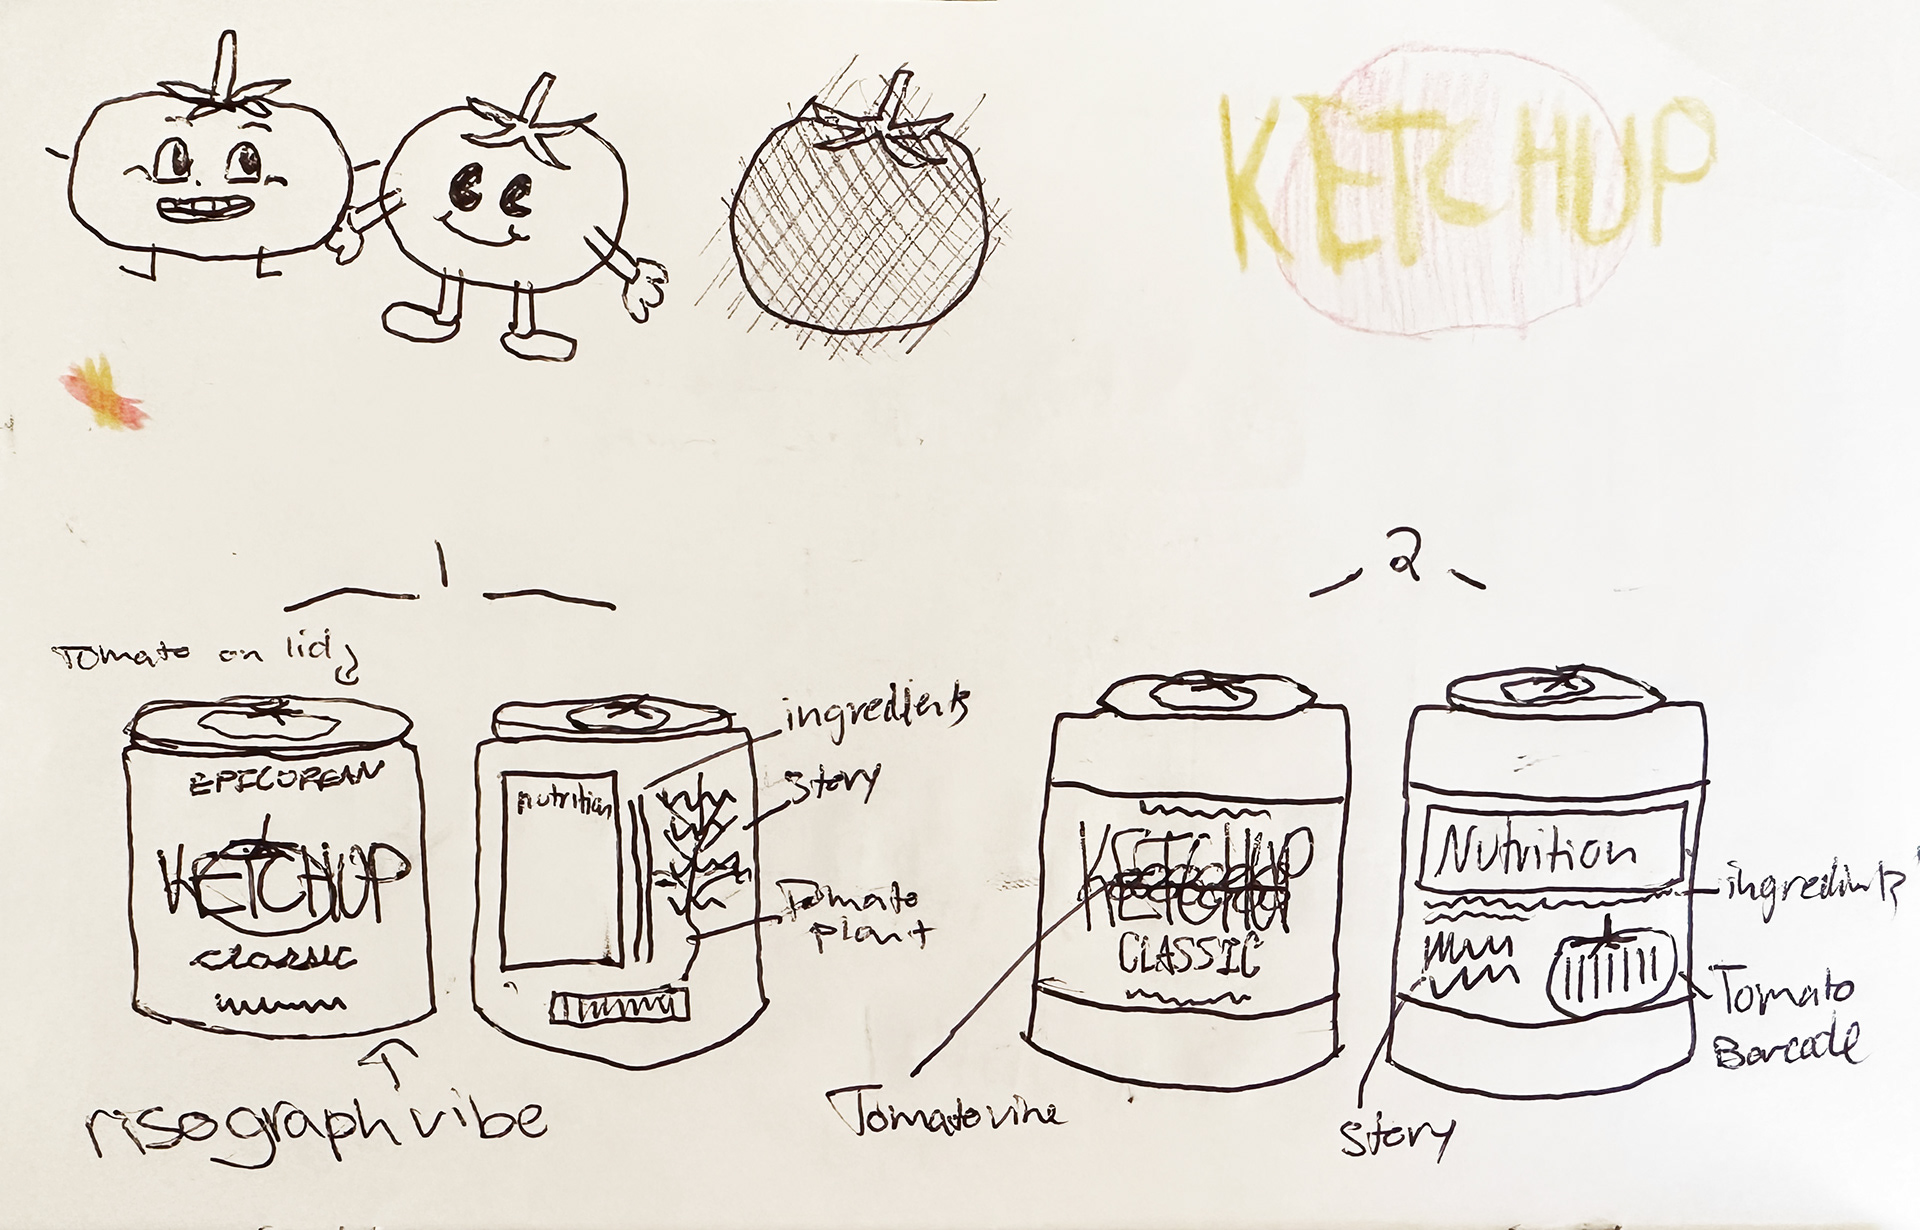 KETCHUP
1
2
Tomato on lid
EPICUREAN
KETCHUP
classic
risograph vibe
nutrition
ingredients
story
Tomato
plant
KETCHUP
CLASSIC
Tomato vine
Nutrition
ingredients
Tomato
Barcode
Story